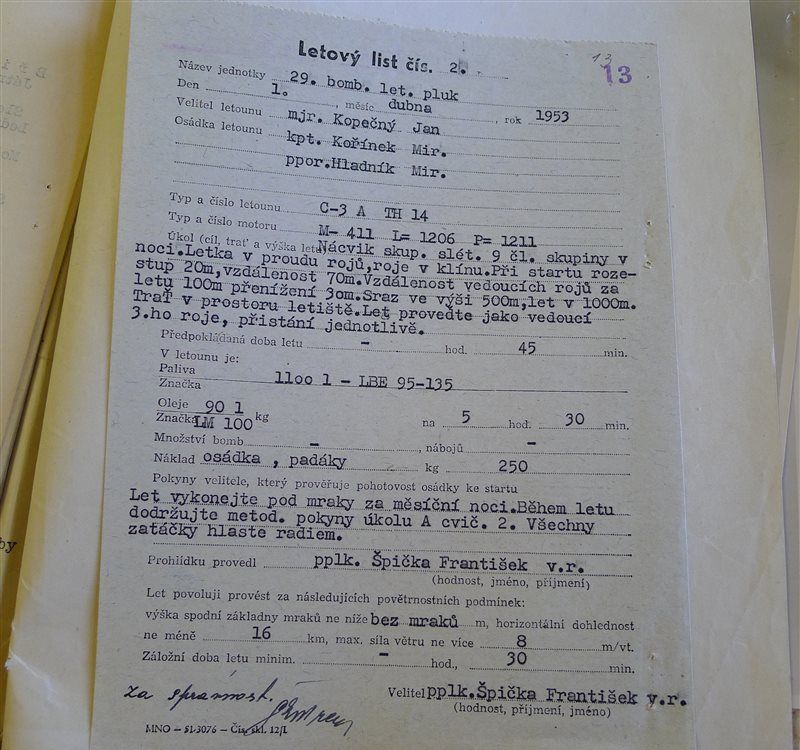 13
13
Letový list čís. 2.
Název jednotky 29. bomb. let. pluk
Den 1. , měsíc dubna , rok 1953
Velitel letounu mjr. Kopečný Jan
Osádka letounu kpt. Kořínek Mir.
ppor.Hladník Mir.
Typ a číslo letounu C-3 A TH 14
Typ a číslo motoru M- 411 L= 1206 P= 1211
Úkol (cíl, trať a výška letu) Nácvik skup. slét. 9 čl. skupiny v
noci.Letka v proudu rojů,roje v klínu.Při startu roze-
stup 20m,vzdálenost 70m.Vzdálenost vedoucích rojů za
letu 100m přenížení 3om.Sraz ve výši 500m,let v 1000m.
Trať v prostoru letiště.Let proveďte jako vedoucí
3.ho roje, přistání jednotlivě.
Předpokládaná doba letu - hod. 45 min.
V letounu je:
Paliva
Značka 11oo l - LBE 95-135
Oleje 90 l
Značka LM 100 kg na 5 hod. 30 min.
Množství bomb - , nábojů -
Náklad osádka , padáky kg 250
Pokyny velitele, který prověřuje pohotovost osádky ke startu
Let vykonejte pod mraky za měsíční noci.Během letu
dodržujte metod. pokyny úkolu A cvič. 2. Všechny
zatáčky hlaste radiem.
Prohlídku provedl pplk. Špička František v.r.
(hodnost, jméno, příjmení)
Let povoluji provést za následujících povětrnostních podmínek:
výška spodní základny mraků ne níže bez mraků m, horizontální dohlednost
ne méně 16 km, max. síla větru ne více 8 m/vt.
Záložní doba letu minim. - hod., 30 min.
za správnost.
Velitel pplk.Špička František v.r.
(hodnost, příjmení, jméno)
MNO – 51-3076 – Čís. skl. 12/I